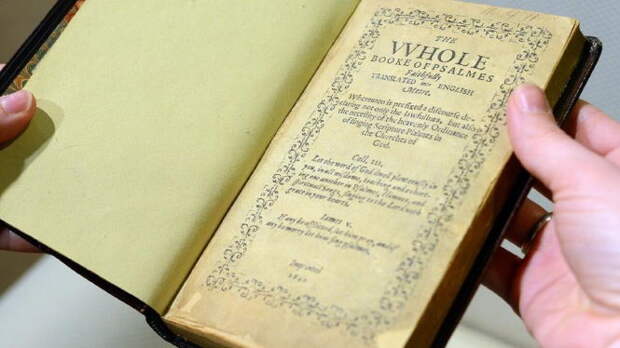 THE
WHOLE
BOOKE OF PSALMES
Faithfully
TRANSLATED into ENGLISH
Metre.
Whereunto is prefixed a discourse de-
claring not only the lawfullnes, but also
the necessity of the heavenly Ordinance
of singing Scripture Psalmes in
the Churches of
God.
Coll. III.
Let the word of God dwell plenteously in
you, in all wisdome, teaching and exhort-
ing one another in Psalmes, Himnes, and
spirituall Songs, singing to the Lord with
grace in your hearts.
Iames v.
If any be afflicted, let him pray, and if
any be merry let him sing psalmes.
Imprinted
1640